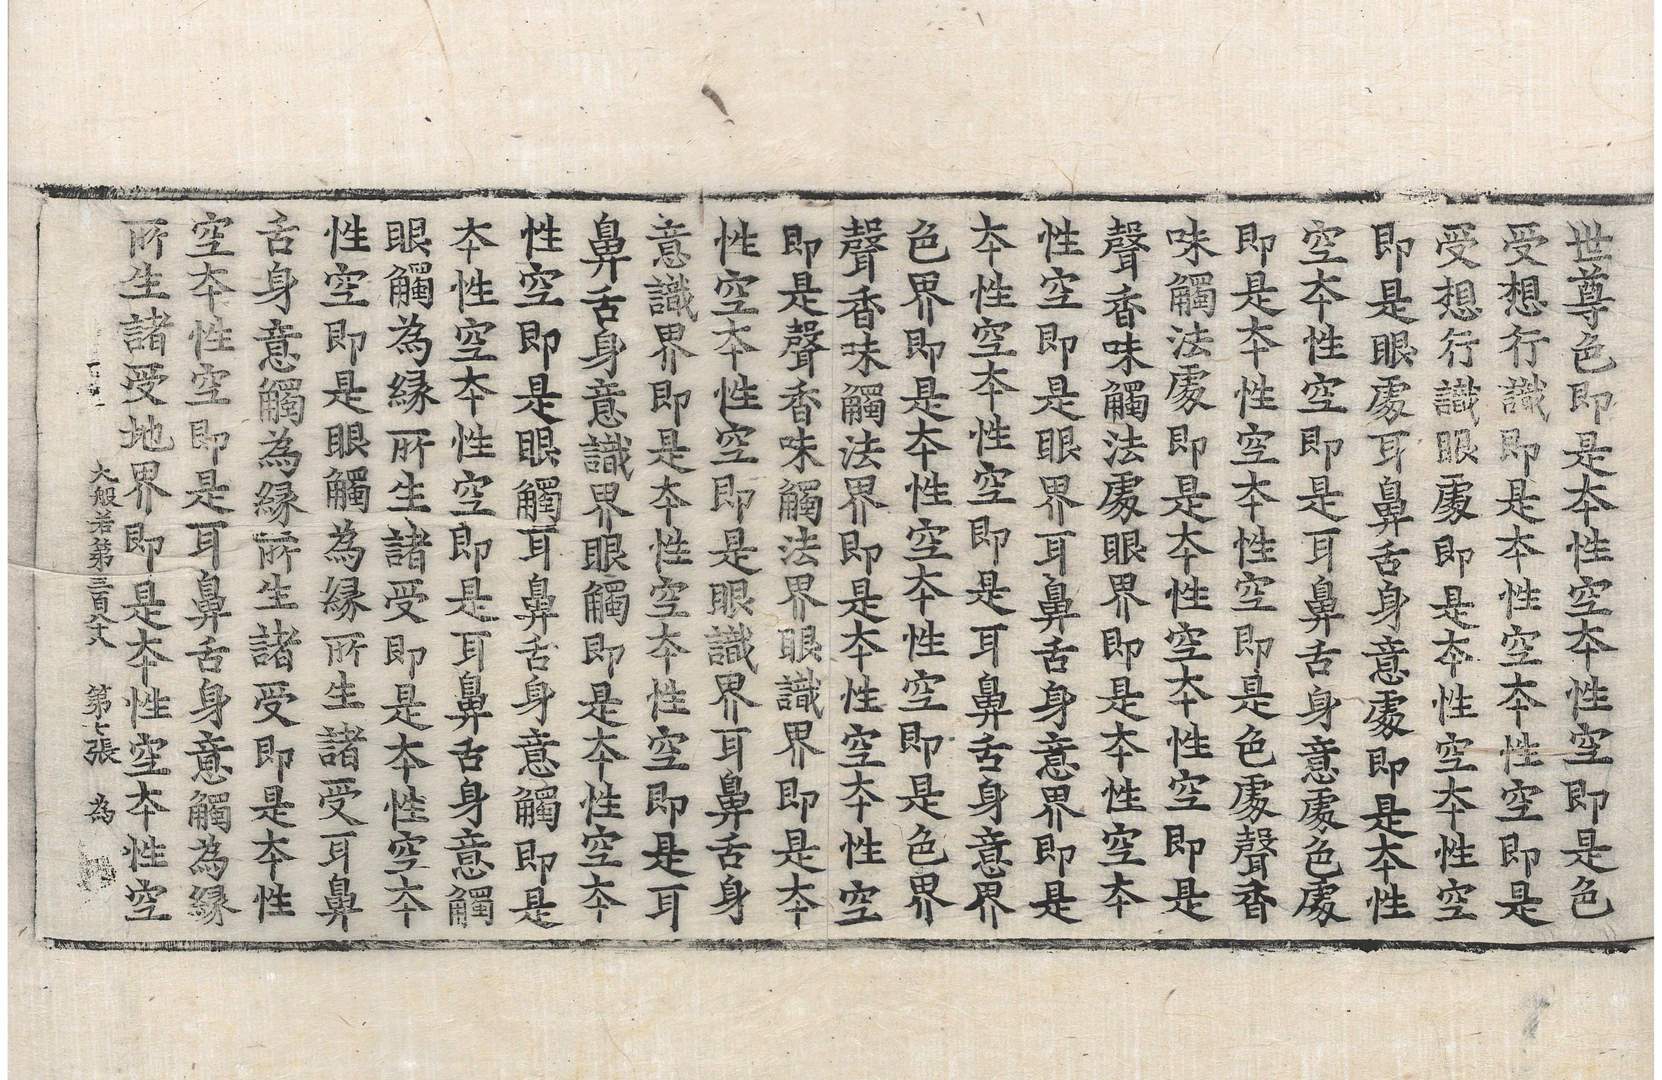 世尊色即是夲性空夲性空即是色
受想行識即是夲性空夲性空即是
受想行識眼處即是夲性空夲性空
即是眼處耳鼻舌身意處即是夲性
空夲性空即是耳鼻舌身意處色處
即是夲性空夲性空即是色處聲香
味觸法處即是夲性空夲性空即是
聲香味觸法處眼界即是夲性空夲
性空即是眼界耳鼻舌身意界即是
夲性空夲性空即是耳鼻舌身意界
色界即是夲性空夲性空即是色界
聲香味觸法界即是夲性空夲性空
即是聲香味觸法界眼識界即是夲
性空夲性空即是眼識界耳鼻舌身
意識界即是夲性空夲性空即是耳
鼻舌身意識界眼觸即是夲性空夲
性空即是眼觸耳鼻舌身意觸即是
夲性空夲性空即是耳鼻舌身意觸
眼觸為緣所生諸受即是夲性空夲
性空即是眼觸為緣所生諸受耳鼻
舌身意觸為緣所生諸受即是夲性
空夲性空即是耳鼻舌身意觸為緣
所生諸受地界即是夲性空夲性空
大般若第三百八十八 第七張 為